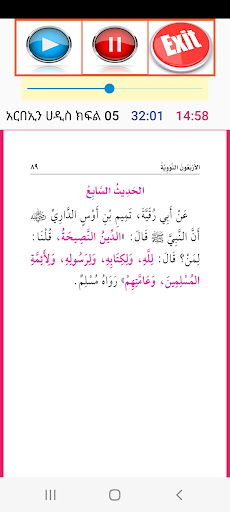 Exit
አርበኢን ሀዲስ ክፍል 05 32:01 14:58
الأربعون النووية ٨٩
الحَدِيثُ السَّابِعُ
عَنْ أَبِي رُقَيَّةَ، تَمِيمِ بْنِ أَوْسٍ الدَّارِيِّ ﷺ
أَنَّ النَّبِيَّ ﷺ قَالَ: «الدِّينُ النَّصِيحَةُ، قُلْنَا:
لِمَنْ؟ قَالَ: لِلَّهِ، وَلِكِتَابِهِ، وَلِرَسُولِهِ، وَلِأَئِمَّةِ
المُسْلِمِينَ، وَعَامَّتِهِمْ» رَوَاهُ مُسْلِمٌ.